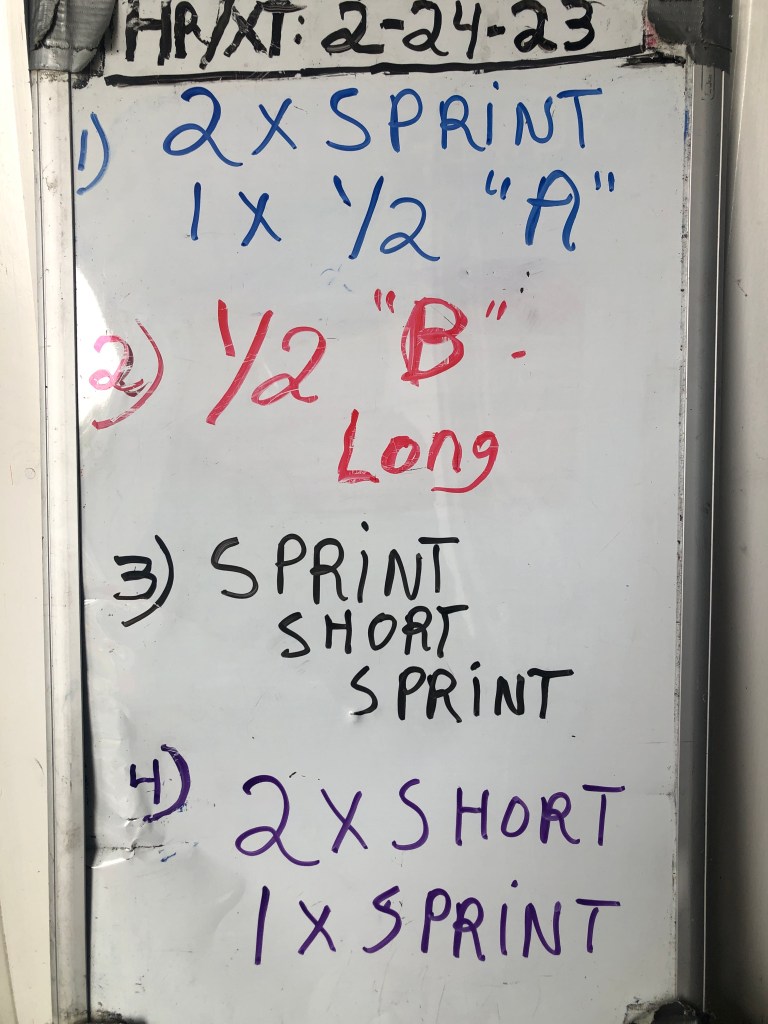 HR/XT: 2-24-23
1) 2 X SPRiNT
1 X 1/2 "A"
2) 1/2 "B"-
Long
3) SPRiNT
SHORT
SPRiNT
4) 2 X SHORT
1 X SPRiNT